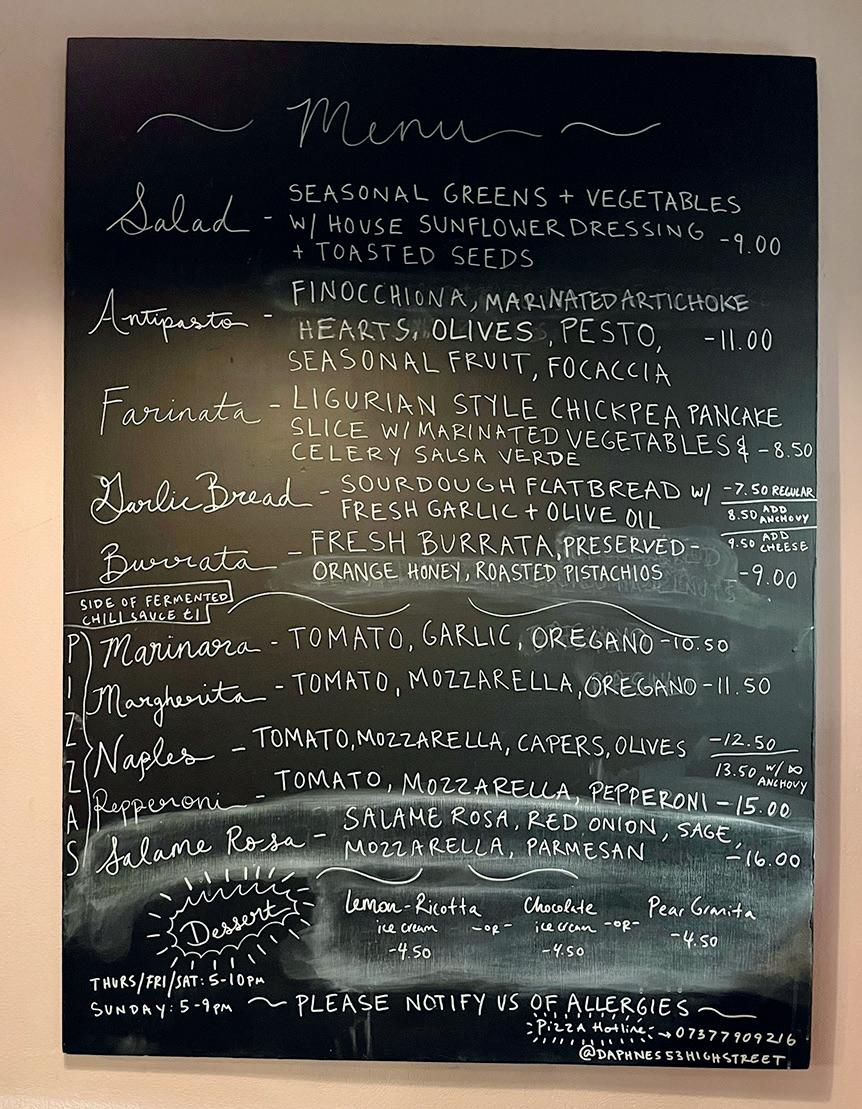 Menu
Salad - SEASONAL GREENS + VEGETABLES
W/ HOUSE SUNFLOWER DRESSING -9.00
+ TOASTED SEEDS
Antipasto - FINOCCHIONA, MARINATED ARTICHOKE
HEARTS, OLIVES, PESTO, -11.00
SEASONAL FRUIT, FOCACCIA
Farinata - LIGURIAN STYLE CHICKPEA PANCAKE
SLICE W/ MARINATED VEGETABLES & -8.50
CELERY SALSA VERDE
Garlic Bread - SOURDOUGH FLATBREAD W/ -7.50 REGULAR
FRESH GARLIC + OLIVE OIL 8.50 ADD ANCHOVY
9.50 ADD CHEESE
Burrata - FRESH BURRATA, PRESERVED-
ORANGE HONEY, ROASTED PISTACHIOS -9.00
SIDE OF FERMENTED
CHILI SAUCE £1
PIZZAS
Marinara - TOMATO, GARLIC, OREGANO -10.50
Margherita - TOMATO, MOZZARELLA, OREGANO -11.50
Naples - TOMATO, MOZZARELLA, CAPERS, OLIVES -12.50
13.50 W/ ANCHOVY
Pepperoni - TOMATO, MOZZARELLA, PEPPERONI -15.00
Salame Rosa - SALAME ROSA, RED ONION, SAGE,
MOZZARELLA, PARMESAN -16.00
Dessert
Lemon-Ricotta ice cream -4.50 -OR- Chocolate ice cream -4.50 -OR- Pear Granita -4.50
THURS/FRI/SAT: 5-10PM
SUNDAY: 5-9PM
PLEASE NOTIFY US OF ALLERGIES
Pizza Hotline: → 07377909216
@DAPHNES53HIGHSTREET